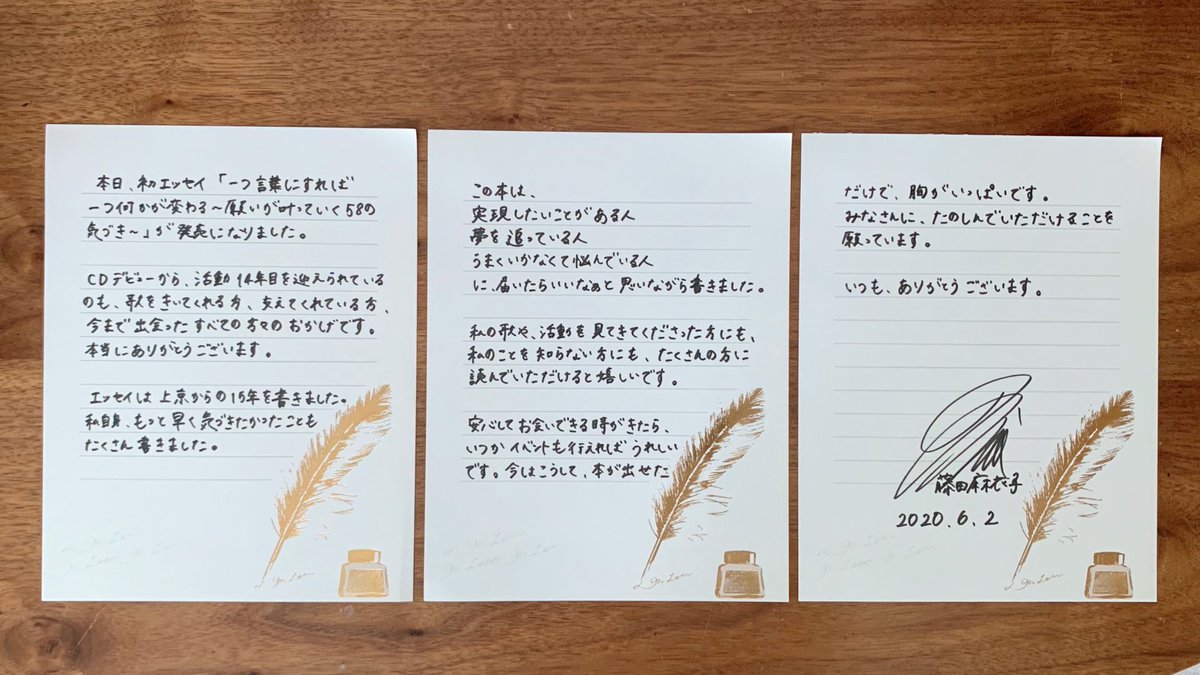 本日、初エッセイ「一つ言葉にすれば
一つ何かが変わる〜願いが叶っていく58の
気づき〜」が発売になりました。
CDデビューから、活動14年目を迎えられている
のも、歌をきいてくれる方、支えてくれている方、
今まで出会ったすべての方々のおかげです。
本当にありがとうございます。
エッセイは上京からの15年を書きました。
私自身、もっと早く気づきたかったことも
たくさん書きました。
この本は、
実現したいことがある人
夢を追っている人
うまくいかなくて悩んでいる人
に、届いたらいいなぁと思いながら書きました。
私の歌や、活動を見てきてくださった方にも、
私のことを知らない方にも、たくさんの方に
読んでいただけると嬉しいです。
安心してお会いできる時がきたら、
いつかイベントも行えればうれしい
です。今はこうして、本が出せた
だけで、胸がいっぱいです。
みなさんに、たのしんでいただけることを
願っています。
いつも、ありがとうございます。
藤田麻衣子
2020.6.2